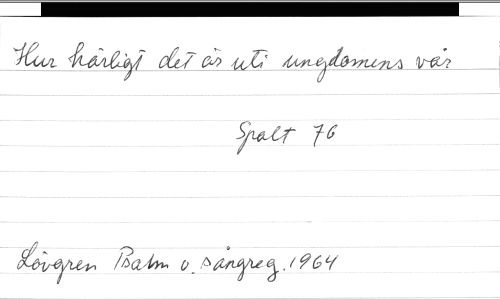 Hur härligt det är uti ungdomens vår
Spalt 76
Lövgren Psalm o. sångreg. 1964